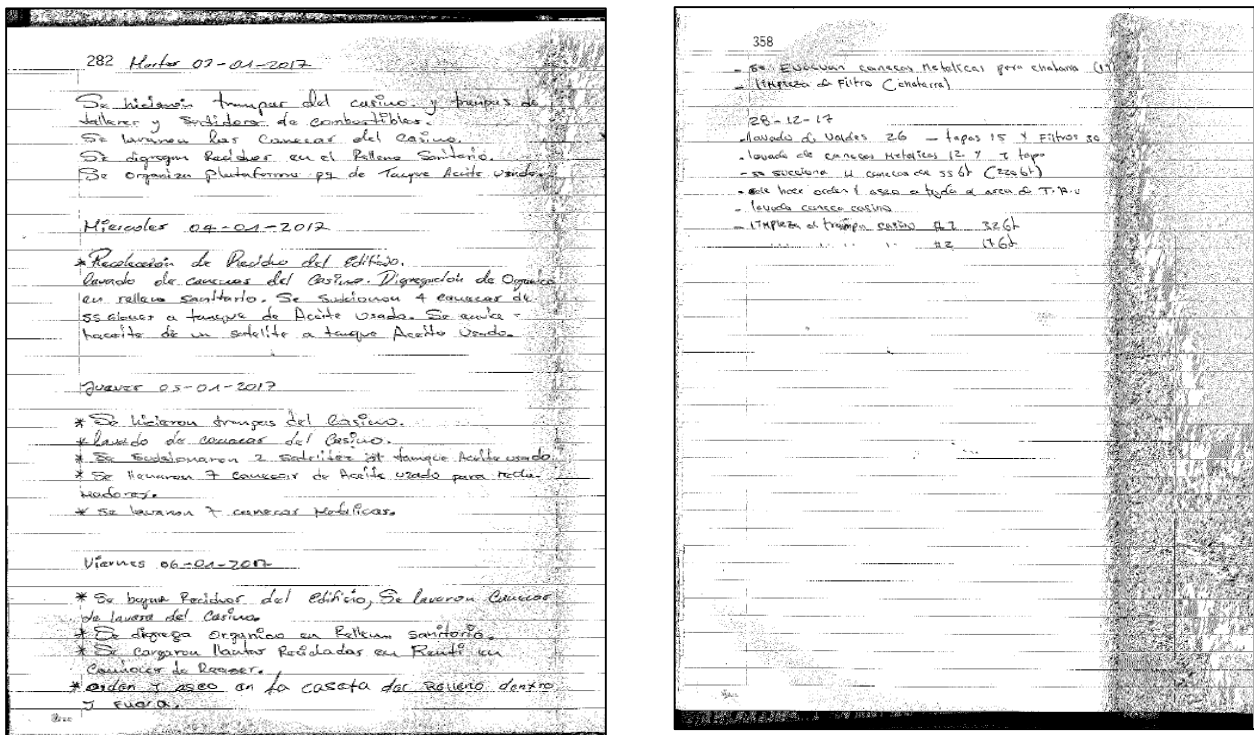 282 Martes 03-01-2017
Se hicieron trampas del casino. y trampas de
talleres y Surtidora de combustibles.
Se lavaron las Canecas del Casino.
Se digregan Residuos en el Relleno Sanitario.
Se organiza plataforma pa de Tanque Aceite usado.
Miercoles 04-01-2017
* Recolección de Residuo del Edificio.
lavado de canecas del Casino. Digregación de Organico
en relleno sanitario. Se Succionon 4 canecas de
55 a tanque de Aceite usado. Se
haceite de un satelite a tanque Aceite Usado.
Jueves 05-01-2017
* Se hicieron trampas del Casino.
* lavado de canecas del Casino.
* Se Succionaron 2 satelites tanque Aceite usado.
* Se llenaron 7 canecas de Aceite usado para recla-
madores.
* Se lavaron 7 canecas Metalicas.
Viernes 06-01-2017
* Se Residuos del Edificio, Se lavaron Canecas
de del Casino.
* Se digrega organico en Relleno sanitario.
* Se cargaron llantas Recicladas en Renti en
de
* orden y aseo en la caseta del Relleno dentro
y fuera.
358
- Se Evacuan canecas Metalicas para chatarra
- limpieza de Filtro (chatarra)
28-12-17
- lavado de Valdes 26 - tapas 15 y Filtros 30
- lavado de canecas Metalicas 12 y 7 tapas
- se succiona 4 canecas de 55 Gl (220 Gl)
- se hace orden y aseo a todo el area de T.A.U
- lavado caneca casino
- limpieza de trampa casino #1 32 Gl
#2 17 Gl